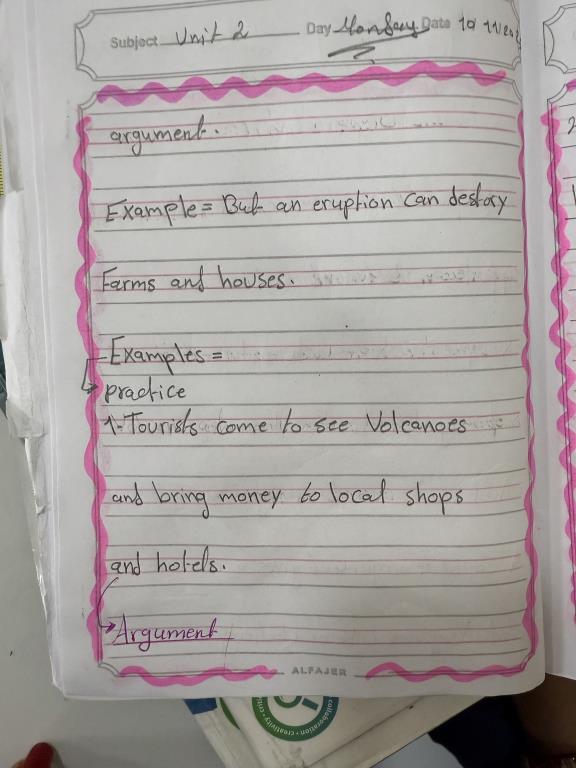 Subject Unit 2 Day Monday Date 10
argument.
Example = But an eruption can destory
Farms and houses.
Examples =
practice
1-Tourists come to see Volcanoes
and bring money to local shops
and hotels.
Argument
ALFAJER
collaboration • creativity